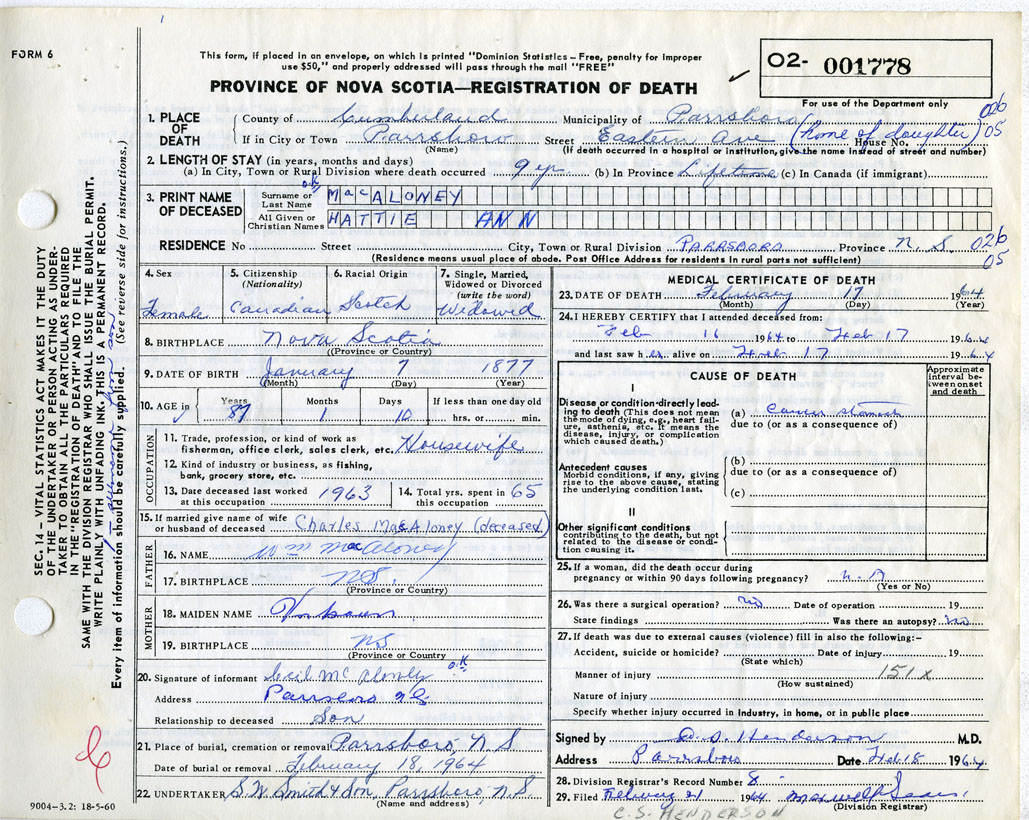 FORM 6
This form, if placed in an envelope, on which is printed "Dominion Statistics – Free, penalty for improper
use $50," and properly addressed will pass through the mail "FREE"
PROVINCE OF NOVA SCOTIA—REGISTRATION OF DEATH
02- 001778
For use of the Department only
1. PLACE OF DEATH
County of Cumberland Municipality of Parrsboro 026
If in City or Town Parrsboro Street Eastern Ave (home of daughter) House No. 05
(Name) (If death occurred in a hospital or institution, give the name instead of street and number)
2. LENGTH OF STAY (in years, months and days)
(a) In City, Town or Rural Division where death occurred 9 yr (b) In Province Lifetime (c) In Canada (if immigrant)
3. PRINT NAME OF DECEASED
O.K. Surname or Last Name MacALONEY
All Given or Christian Names HATTIE ANN
RESIDENCE No Street City, Town or Rural Division PARRSBORO Province N.S. 026
(Residence means usual place of abode. Post Office Address for residents in rural parts not sufficient) 05
4. Sex Female
5. Citizenship (Nationality) Canadian
6. Racial Origin Scotch
7. Single, Married, Widowed or Divorced (write the word) Widowed
8. BIRTHPLACE Nova Scotia
(Province or Country)
9. DATE OF BIRTH January 7 1877
(Month) (Day) (Year)
10. AGE in Years 87 Months 1 Days 10 If less than one day old hrs. or min.
OCCUPATION
11. Trade, profession, or kind of work as fisherman, office clerk, sales clerk, etc. Housewife
12. Kind of industry or business, as fishing, bank, grocery store, etc.
13. Date deceased last worked at this occupation 1963
14. Total yrs. spent in this occupation 65
15. If married give name of wife or husband of deceased Charles MacAloney (deceased)
FATHER
16. NAME Wm MacAloney
17. BIRTHPLACE NS.
(Province or Country)
MOTHER
18. MAIDEN NAME
19. BIRTHPLACE NS
(Province or Country
20. Signature of informant Cecil McAloney O.K
Address Parrsboro N S
Relationship to deceased Son
21. Place of burial, cremation or removal Parrsboro, N.S
Date of burial or removal February 18, 1964
22. UNDERTAKER S.W. Smith & Son, Parrsboro, N.S.
(Name and address)
MEDICAL CERTIFICATE OF DEATH
23. DATE OF DEATH February 17 1964
(Month) (Day) (Year)
24. I HEREBY CERTIFY that I attended deceased from:
Feb 16 1964 to Feb 17 1964
and last saw her alive on Feb 17 1964
CAUSE OF DEATH
Approximate interval between onset and death
I
Disease or condition directly leading to death (This does not mean the mode of dying, e.g., heart failure, asthenia, etc. It means the disease, injury, or complication which caused death.)
(a) Cancer stomach
due to (or as a consequence of)
Antecedent causes
Morbid conditions, if any, giving rise to the above cause, stating the underlying condition last.
(b)
due to (or as a consequence of)
(c)
II
Other significant conditions contributing to the death, but not related to the disease or condition causing it.
25. If a woman, did the death occur during pregnancy or within 90 days following pregnancy? N.A
(Yes or No)
26. Was there a surgical operation? No Date of operation 19
State findings Was there an autopsy? No
27. If death was due to external causes (violence) fill in also the following:–
Accident, suicide or homicide? Date of injury 19
(State which)
Manner of injury 151X
(How sustained)
Nature of injury
Specify whether injury occurred in industry, in home, or in public place
Signed by D.S. Henderson M.D.
Address Parrsboro Date Feb 18 1964
28. Division Registrar's Record Number 8
29. Filed February 21 1964
(Division Registrar)
C.S. HENDERSON
9004–3.2: 18-5-60
SEC. 14 – VITAL STATISTICS ACT MAKES IT THE DUTY
OF THE UNDERTAKER OR PERSON ACTING AS UNDERTAKER
TO OBTAIN ALL THE PARTICULARS REQUIRED
IN THE "REGISTRATION OF DEATH" AND TO FILE THE
SAME WITH THE DIVISION REGISTRAR WHO SHALL ISSUE THE BURIAL PERMIT.
WRITE PLAINLY WITH UNFADING INK. THIS IS A PERMANENT RECORD.
Every item of information should be carefully supplied. (See reverse side for instructions.)